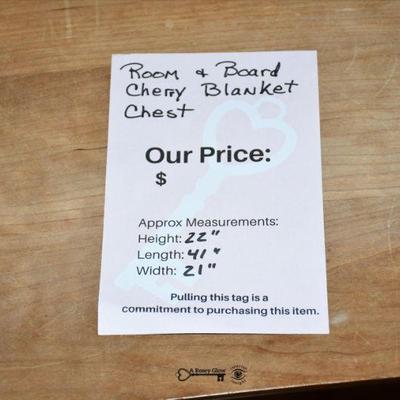 Room & Board
Cherry Blanket
Chest
Our Price:
$
Approx Measurements:
Height: 22"
Length: 41"
Width: 21"
Pulling this tag is a
commitment to purchasing this item.
A Rosey Glow